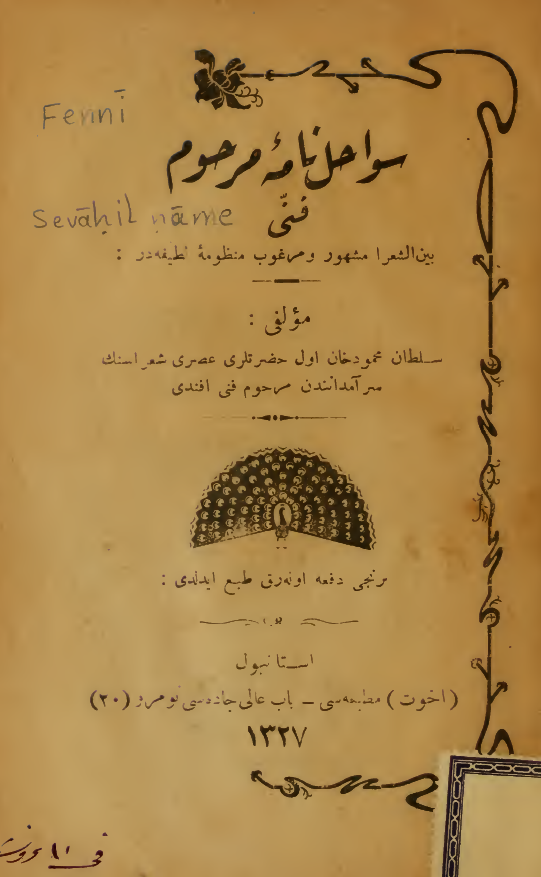 Fennī
سواحلنامۀ مرحوم
فنّی
Sevāḥil nāme
بین‌الشعرا مشهور و مرغوب منظومۀ لطیفه‌در :
مؤلفی :
سلطان محمودخان اول حضرتلری عصری شعراسنك
سرآمدانندن مرحوم فنی افندی
برنجی دفعه اوله‌رق طبع ایدلدی :
استانبول
(اخوت) مطبعه‌سی – باب عالی جاده‌سی نومرو (٢٠)
١٣٢٧
فی ١١